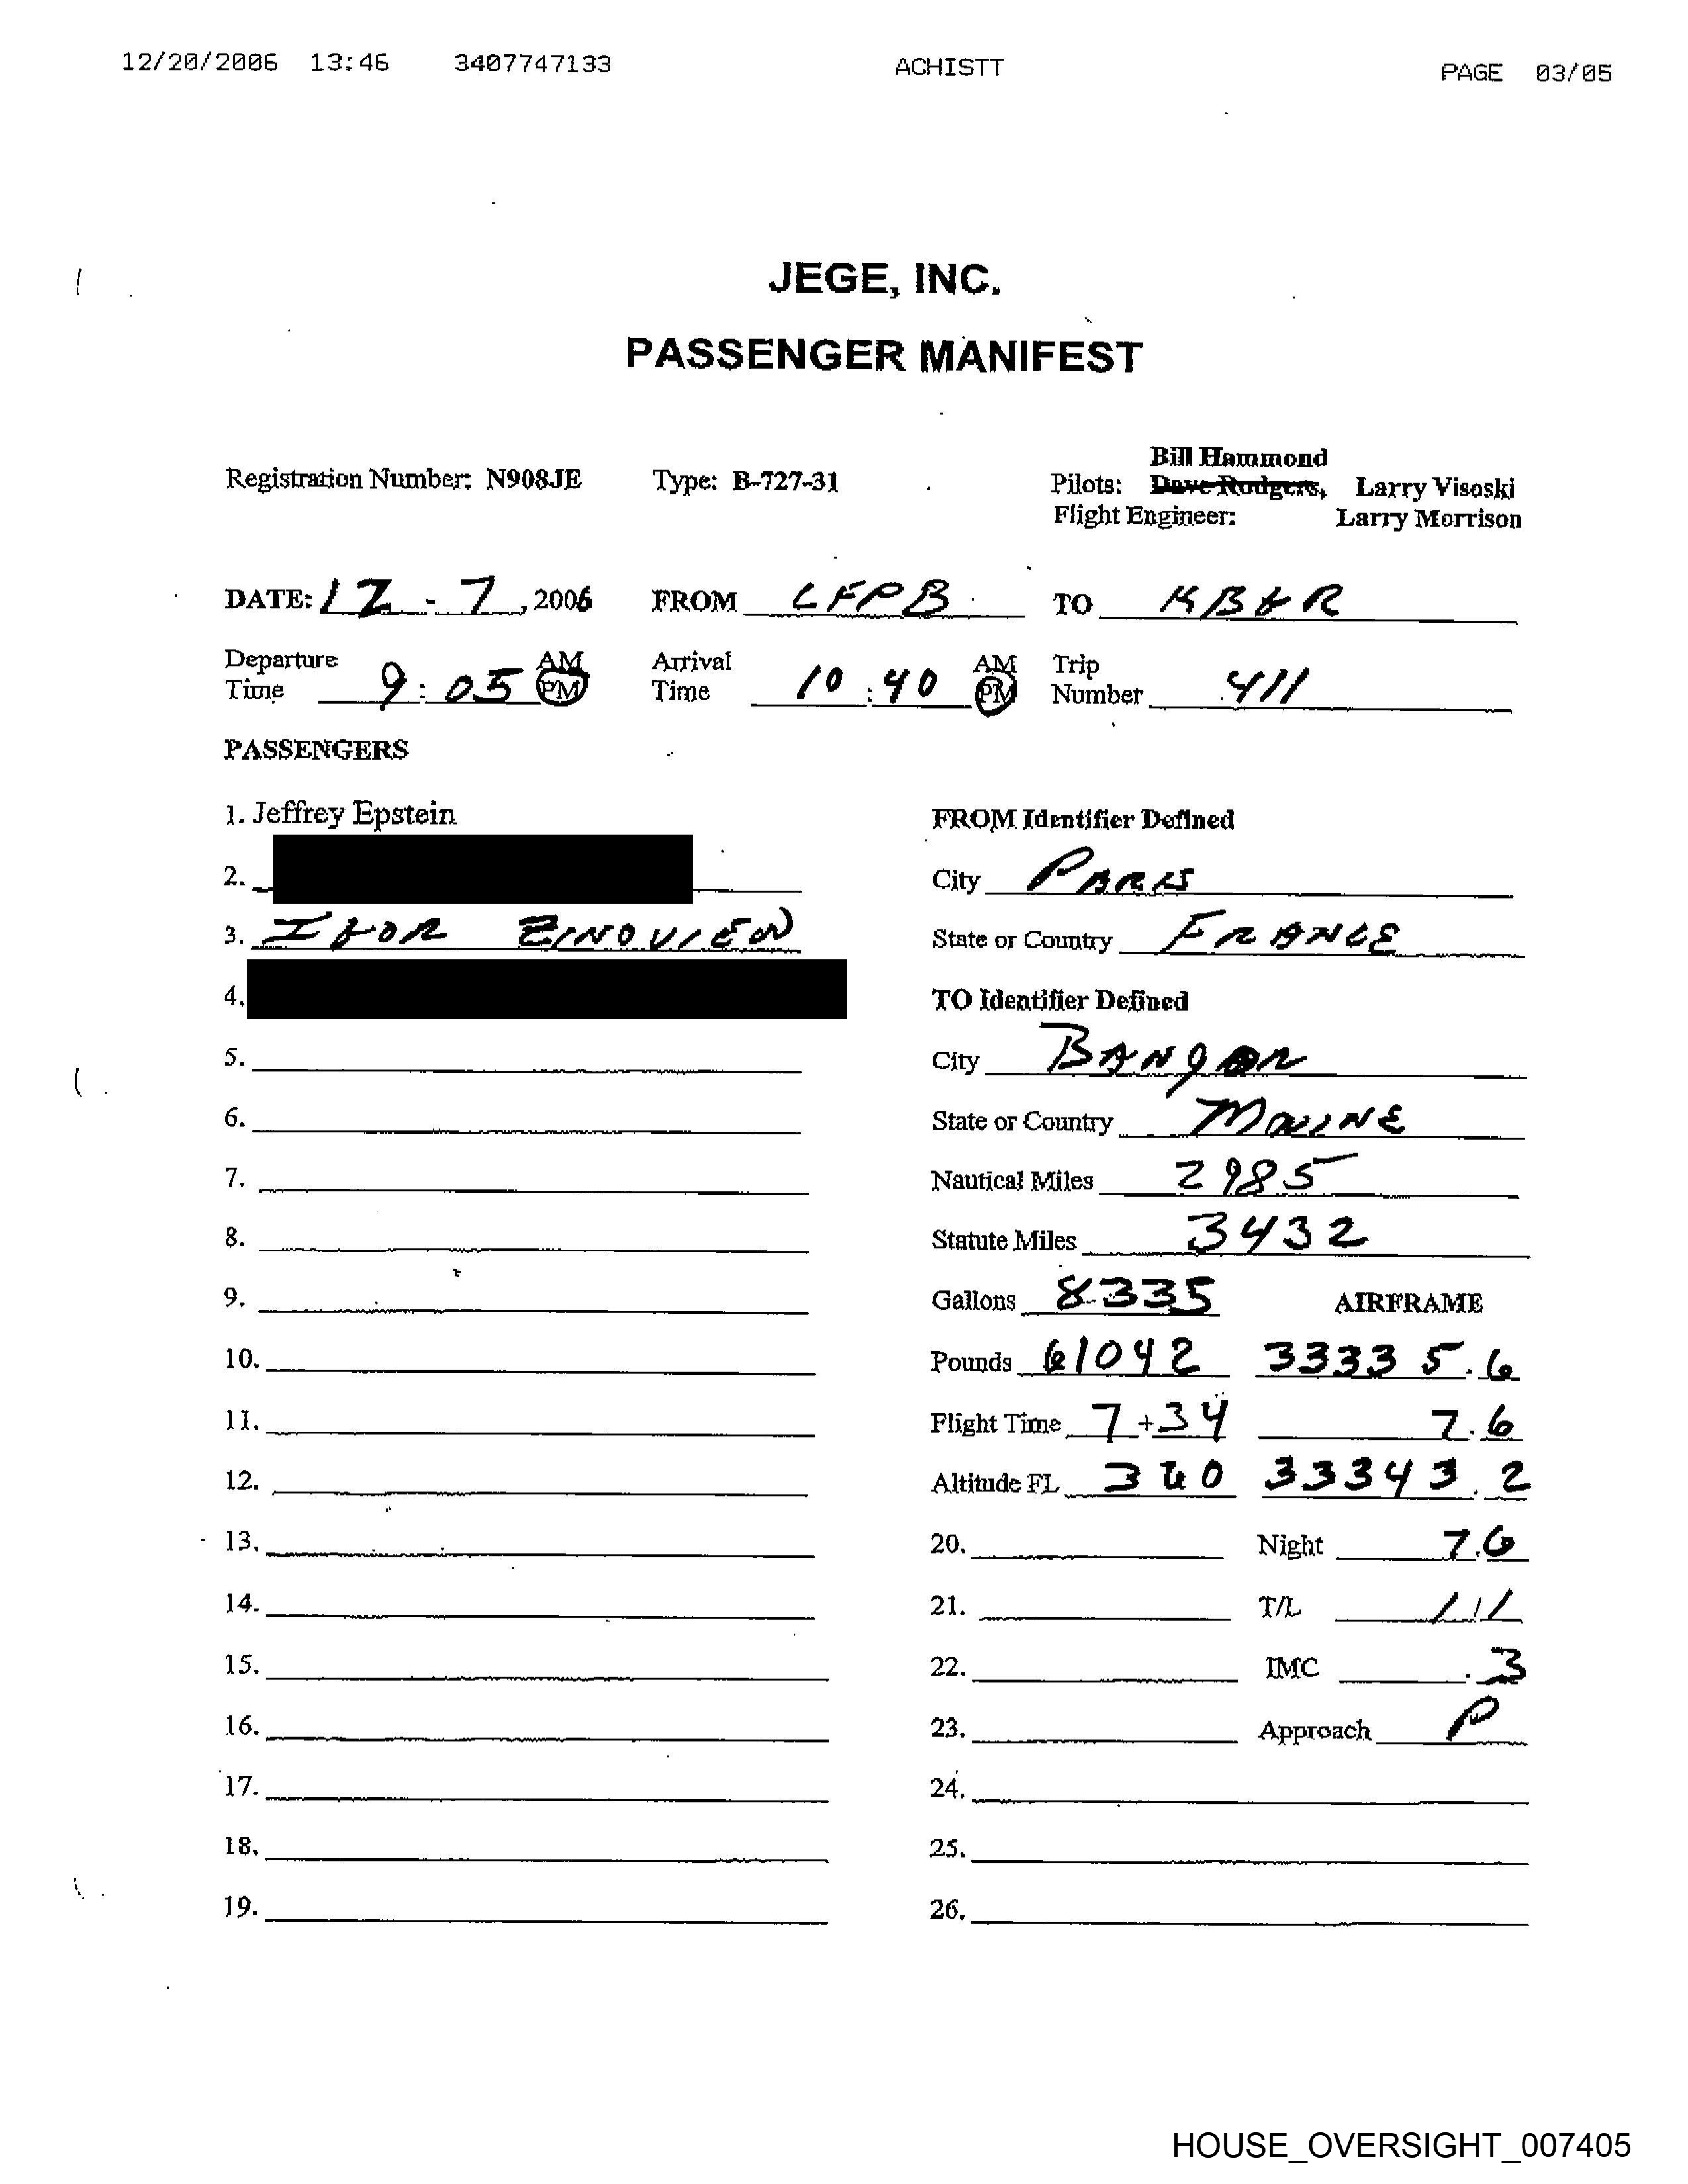 12/20/2006 13:46 3407747133 ACHISTT PAGE 03/05
JEGE, INC.
PASSENGER MANIFEST
Bill Hammond
Registration Number: N908JE Type: B-727-31 Pilots: Dave Rodgers, Larry Visoski
Flight Engineer: Larry Morrison
DATE: 12 - 7, 2006 FROM LFPB TO KBGR
Departure Time 9:05 AM PM Arrival Time 10:40 AM PM Trip Number 411
PASSENGERS
1. Jeffrey Epstein FROM Identifier Defined
2. City PARIS
3. IGOR ZINOVIEW State or Country FRANCE
4. TO Identifier Defined
5. City BANGOR
6. State or Country MAINE
7. Nautical Miles 2985
8. Statute Miles 3432
9. Gallons 8335 AIRFRAME
10. Pounds 61042 33335.6
11. Flight Time 7+34 7.6
12. Altitude FL 33343.2
13. 20. Night 7.6
14. 21. T/L 1/1
15. 22. IMC .3
16. 23. Approach P
17. 24.
18. 25.
19. 26.
HOUSE_OVERSIGHT_007405